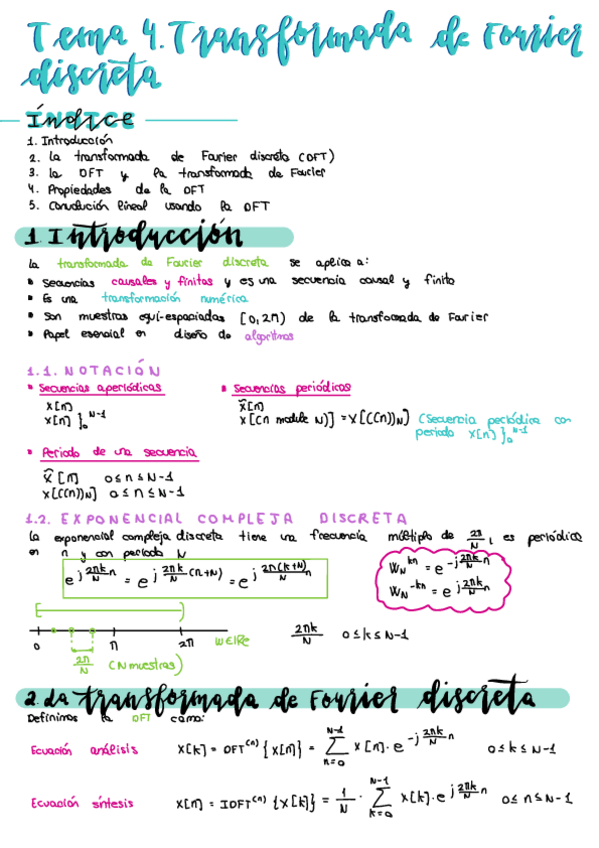 Tema 4. Transformada de Fourier
discreta
ÍNDICE
1. Introducción
2. La transformada de Fourier discreta (DFT)
3. La DFT y la transformada de Fourier
4. Propiedades de la DFT
5. Convolución lineal usando la DFT
1. Introducción
La transformada de Fourier discreta se aplica a:
• Secuencias causales y finitas y es una secuencia causal y finita
• Es una transformación numérica
• Son muestras equi-espaciadas [0,2π) de la transformada de Fourier
• Papel esencial en diseño de algoritmos
1.1. NOTACIÓN
• Secuencias aperiódicas
x[n]
x[n] }₀ᴺ⁻¹
• Secuencias periódicas
x̃[n]
x[(n module N)] = x[((n))N] (Secuencia periódica con
periodo x[n] }₀ᴺ⁻¹
• Periodo de una secuencia
x̃[n] 0≤n≤N-1
x[((n))N] 0≤n≤N-1
1.2. EXPONENCIAL COMPLEJA DISCRETA
La exponencial compleja discreta tiene una frecuencia múltiplo de 2π/N, es periódica
en n y con periodo N
e^(j 2πk/N n) = e^(j 2πk/N (n+N)) = e^(j 2π(k+N)/N n)
W_N^(kn) = e^(-j 2πk/N n)
W_N^(-kn) = e^(j 2πk/N n)
0 π 2π w∈ℝe
2π/N (N muestras)
2πk/N 0≤k≤N-1
2. La transformada de Fourier discreta
Definimos la DFT como:
Ecuación análisis X[k] = DFT^(N) {x[n]} = Σ_(n=0)^(N-1) x[n]·e^(-j 2πk/N n) 0≤k≤N-1
Ecuación síntesis x[n] = IDFT^(N) {X[k]} = 1/N · Σ_(k=0)^(N-1) X[k]·e^(j 2πk/N n) 0≤n≤N-1